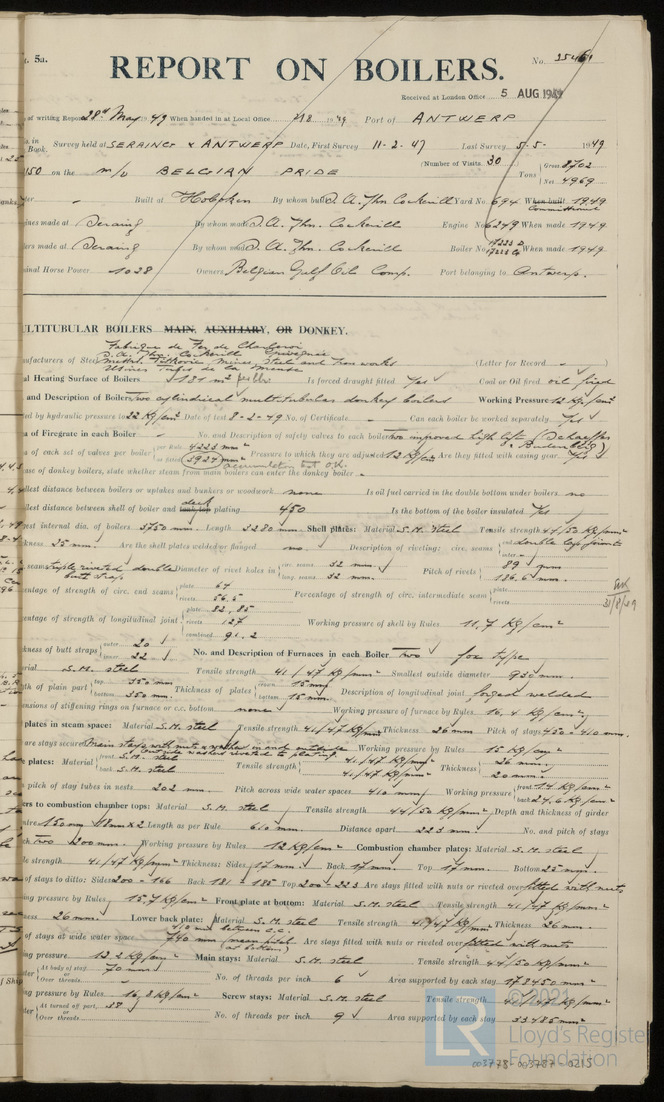 5a.
REPORT ON BOILERS.
No. 35461
Received at London Office 5 AUG 1949
of writing Report 28th May 1949 When handed in at Local Office 1949 Port of ANTWERP
Survey held at SERAING & ANTWERP Date, First Survey 11-2-47 Last Survey 5-5- 1949
Book.
(Number of Visits 30) Tons Gross 8702
Net 4969
on the m/v BELGIAN PRIDE
Built at Hoboken By whom built S.A. Jhn. Cockerill Yard No. 694 When built 1949
made at Seraing By whom made S.A. Jhn. Cockerill Engine No. 6249 When made 1949
made at Seraing By whom made S.A. Jhn. Cockerill Boiler No. When made 1949
Horse Power 1028 Owners Belgian Gulf Oil Comp. Port belonging to Antwerp.
MULTITUBULAR BOILERS MAIN, AUXILIARY, OR DONKEY.
Fabrique de Fer de Charleroi
of Steel (Letter for Record
Heating Surface of Boilers Is forced draught fitted Yes Coal or Oil fired oil fired
and Description of Boilers Two cylindrical multitubular donkey boilers Working Pressure 12 Kg/cm²
by hydraulic pressure to 22 Kg/cm² Date of test 8-2-49 No. of Certificate - Can each boiler be worked separately Yes
of Firegrate in each Boiler - No. and Description of safety valves to each boiler Two improved high lift
of each set of valves per boiler per Rule 4223 mm² as fitted 3927 mm² Pressure to which they are adjusted 12 Kg/cm² Are they fitted with easing gear Yes
accumulation test O.K.
of donkey boilers, state whether steam from main boilers can enter the donkey boiler -
distance between boilers or uptakes and bunkers or woodwork none Is oil fuel carried in the double bottom under boilers no
distance between shell of boiler and tank top deck plating 450 Is the bottom of the boiler insulated yes
internal dia. of boilers 3750 mm. Length 3280 mm. Shell plates: Material S.M. Steel Tensile strength 44/50 Kg/mm²
25 mm. Are the shell plates welded or flanged no. Description of riveting: circ. seams end double lap joints
inter -
seams Triple riveted double butt strap Diameter of rivet holes in circ. seams 32 mm. long. seams 32 mm. Pitch of rivets 89 mm 136.6 mm.
of strength of circ. end seams plate 64 rivets 56.5 Percentage of strength of circ. intermediate seam plate rivets
of strength of longitudinal joint plate 82,85 rivets 127 combined 91.2 Working pressure of shell by Rules 11,7 Kg/cm²
of butt straps outer 20 inner 22 No. and Description of Furnaces in each Boiler two fox type
S.M. steel Tensile strength 41/47 Kg/mm² Smallest outside diameter 950 mm.
of plain part top 350 mm. bottom 350 mm. Thickness of plates top 15 mm bottom 15 mm. Description of longitudinal joint forged welded
of stiffening rings on furnace or c.c. bottom none Working pressure of furnace by Rules 16,4 Kg/cm²
plates in steam space: Material S.M. steel Tensile strength 41/47 Kg/mm² Thickness 26 mm. Pitch of stays 450 - 410 mm.
are stays secured Main stays with nuts & washers Working pressure by Rules 15 Kg/cm²
plates: Material front S.M. steel back S.M. steel Tensile strength 41/47 Kg/mm² 41/47 Kg/mm² Thickness 26 mm. 20 mm.
pitch of stay tubes in nests 202 mm. Pitch across wide water spaces 410 mm Working pressure front 14 Kg/cm² back 24,6 Kg/cm²
to combustion chamber tops: Material S.M. steel Tensile strength 44/50 Kg/mm² Depth and thickness of girder
150 mm 18 mm x 2 Length as per Rule 610 mm. Distance apart 223 mm. No. and pitch of stays
two 200 mm. Working pressure by Rules 12 Kg/cm² Combustion chamber plates: Material S.M. steel
strength 41/47 Kg/mm² Thickness: Sides 17 mm. Back 17 mm. Top 17 mm. Bottom 25 mm.
of stays to ditto: Sides 200 - 166 Back 181 - 185 Top 200 - 223 Are stays fitted with nuts or riveted over fitted with nuts
pressure by Rules 15,7 Kg/cm² Front plate at bottom: Material S.M. steel Tensile strength 41/47 Kg/mm²
26 mm. Lower back plate: Material S.M. steel Tensile strength 41/47 Kg/mm² Thickness 26 mm.
of stays at wide water space Are stays fitted with nuts or riveted over fitted with nuts
pressure 12.2 Kg/cm² Main stays: Material S.M. steel Tensile strength 44/50 Kg/mm²
At body of stay 70 mm. or Over threads No. of threads per inch 6 Area supported by each stay 178450 mm²
pressure by Rules 16,8 Kg/cm² Screw stays: Material S.M. steel Tensile strength 41/47 Kg/mm²
At turned off part, 38 or Over threads No. of threads per inch 9 Area supported by each stay 33485 mm²
© 2021
LR
Lloyd's Register
Foundation
003778-003787-0215